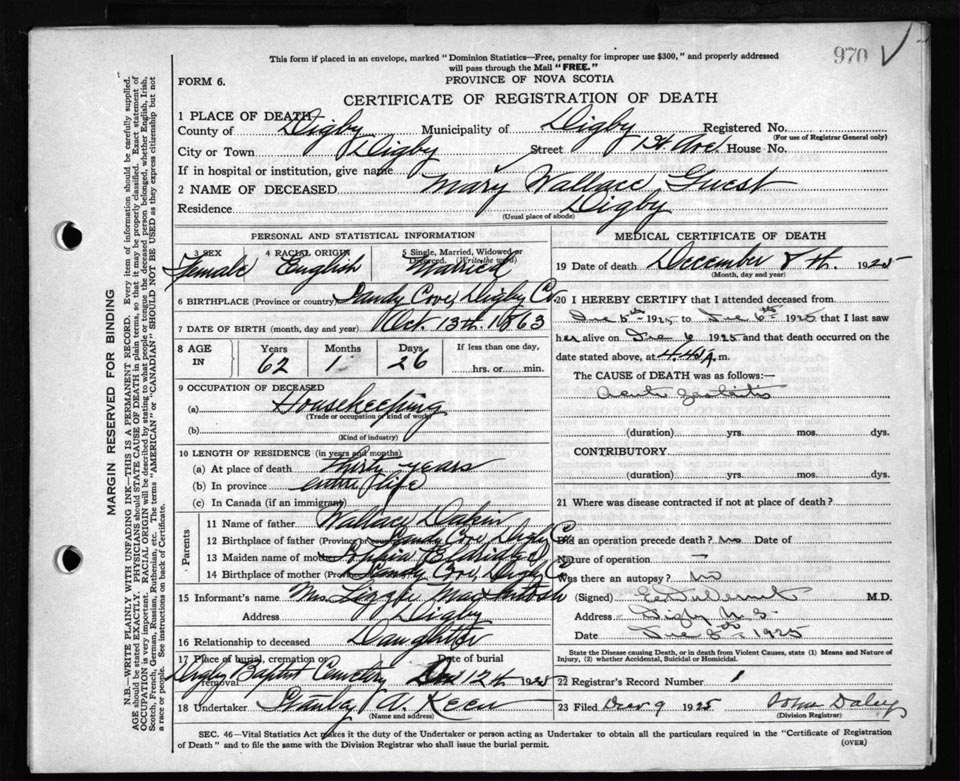 970 V
This form if placed in an envelope, marked "Dominion Statistics—Free, penalty for improper use $300," and properly addressed
will pass through the Mail "FREE."
FORM 6.
PROVINCE OF NOVA SCOTIA
CERTIFICATE OF REGISTRATION OF DEATH
1 PLACE OF DEATH
County of Digby Municipality of Digby Registered No.
(For use of Registrar General only)
City or Town Digby Street 1st Ave House No.
If in hospital or institution, give name
2 NAME OF DECEASED Mary Wallace Guest
Residence Digby
(Usual place of abode)
PERSONAL AND STATISTICAL INFORMATION
3 SEX Female
4 RACIAL ORIGIN English
5 Single, Married, Widowed or Divorced. (Write the word) Married
6 BIRTHPLACE (Province or country) Sandy Cove, Digby Co.
7 DATE OF BIRTH (month, day and year) Oct. 13th. 1863
8 AGE IN Years 62 Months 1 Days 26 If less than one day, hrs. or min.
9 OCCUPATION OF DECEASED
(a) Housekeeping
(Trade or occupation or kind of work)
(b)
(Kind of industry)
10 LENGTH OF RESIDENCE (in years and months)
(a) At place of death thirty years
(b) In province entire life
(c) In Canada (if an immigrant)
Parents
11 Name of father Wallace Dakin
12 Birthplace of father (Province or country) Sandy Cove, Digby Co
13 Maiden name of mother Sophia Eldridge
14 Birthplace of mother (Prov Sandy Cove, Digby Co
15 Informant's name Mrs Lizzie MacKintosh
Address Digby
16 Relationship to deceased Daughter
17 Place of burial, cremation or removal Digby Baptist Cemetery Date of burial Dec 12th 1925
18 Undertaker Stanley A. Keen
(Name and address)
MEDICAL CERTIFICATE OF DEATH
19 Date of death December 8th. 1925
(Month, day and year)
20 I HEREBY CERTIFY that I attended deceased from
Dec 5th 1925 to Dec 6th 1925 that I last saw
her alive on Dec 6 1925 and that death occurred on the
date stated above, at 4.45 A. m.
The CAUSE of DEATH was as follows:—
Acute
(duration) yrs. mos. dys.
CONTRIBUTORY
(duration) yrs. mos. dys.
21 Where was disease contracted if not at place of death?
Did an operation precede death? no Date of
Nature of operation —
Was there an autopsy? no
(Signed) M.D.
Address Digby N.S.
Date Dec 8th 1925
State the Disease causing Death, or in death from Violent Causes, state (1) Means and Nature of
Injury, (2) whether Accidental, Suicidal or Homicidal.
22 Registrar's Record Number 1
23 Filed Dec 9 1925 John Daley
(Division Registrar)
SEC. 46—Vital Statistics Act makes it the duty of the Undertaker or person acting as Undertaker to obtain all the particulars required in the "Certificate of Registration
of Death" and to file the same with the Division Registrar who shall issue the burial permit.
(OVER)
MARGIN RESERVED FOR BINDING
N.B.—WRITE PLAINLY WITH UNFADING INK—THIS IS A PERMANENT RECORD. Every item of information should be carefully supplied.
AGE should be stated EXACTLY. PHYSICIANS should STATE CAUSE OF DEATH in plain terms, so that it may be properly classified. Exact statement of
OCCUPATION is very important. RACIAL ORIGIN will be described by stating to what people or tongue the deceased person belonged, whether English, Irish,
Scotch, French, German, Russian, Ruthenian, etc. The terms "AMERICAN" or "CANADIAN" SHOULD NOT BE USED as they express citizenship but not
a race or people. See instructions on back of Certificate.